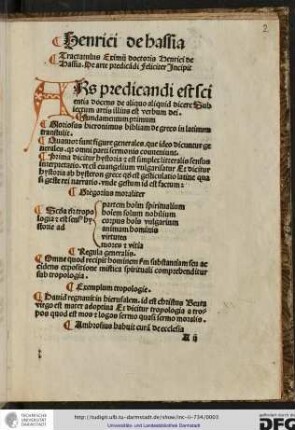 2
Henrici de hassia
Tractatulus Eximii doctoris Henrici de
Hassia. De arte predicãdi Feliciter Incipit
ARs predicandi est sci
entia docens de aliquo aliquid dicere Sub
iectum artis illius est verbum dei.
Fundamentum primum
Gloriosus hieronimus bibliam de greco in latinum
transtulit.
Quatuor sunt figure generales. que ideo dicuntur ge
nerales. qz omni parti sermonis conueniunt.
Prima dicitur hystoria z est simplex litteralis sensus
interpretatio. vt est euangelium vulgarisatur Et dicitur
hystoria ab hysteron grece qd est gesticulatio latine qua
si geste rei narratio. vnde gestum id est factum:
Gregorius moraliter
Secũda ẽ tropo
logia z est sensus hy
storie ad
partem boĩm spiritualium
bolem solum nobilium
corpus boĩs vulgarium
animam hominis
virtutes
mores z vitia
Regula generalis.
Omne quod recipit hominem fm substantiam seu ac
cidens expositione mistica spirituali comprehenditur
sub tropologia.
Exemplum tropologie.
Dauid regnauit in hierusalem. id est christus Beata
virgo est mater adoptiua Et dicitur tropologia a tro
pos quod est mos z logos sermo quasi sermo moralis.
Ambrosius habuit curã de ecclesia
A ij
TECHNISCHE
UNIVERSITÄT
DARMSTADT
http://tudigit.ulb.tu-darmstadt.de/show/inc-ii-734/0003
Universitäts- und Landesbibliothek Darmstadt
gefördert durch die
DFG